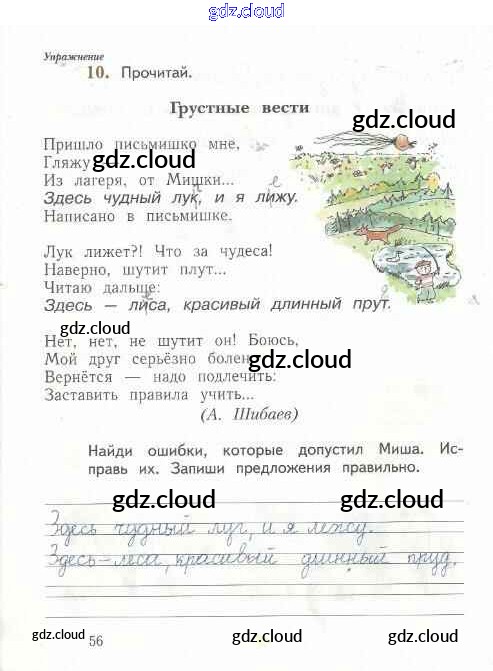 gdz.cloud
Упражнение
10. Прочитай.
Грустные вести
gdz.cloud
Пришло письмишко мне,
gdz.cloud
Гляжу
Из лагеря, от Мишки...
Здесь чудный лук, и я лижу.
Написано в письмишке.
gdz.cloud
Лук лижет?! Что за чудеса!
Наверно, шутит плут...
Читаю дальше:
Здесь — лиса, красивый длинный прут.
gdz.cloud
Нет, нет, не шутит он! Боюсь,
Мой друг серьёзно болен
gdz.cloud
Вернётся — надо подлечить:
gdz.cloud
Заставить правила учить...
(А. Шибаев)
Найди ошибки, которые допустил Миша. Ис-
правь их. Запиши предложения правильно.
gdz.cloud gdz.cloud
Здесь чудный луг, и я лежу.
Здесь - леса, красивый длинный пруд.
gdz.cloud 56 gdz.cloud gdz.cloud